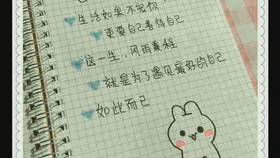 生活如果不宠你
更要自己善待自己
这一生，风雨兼程
就是为了遇见最好的自己
如此而已